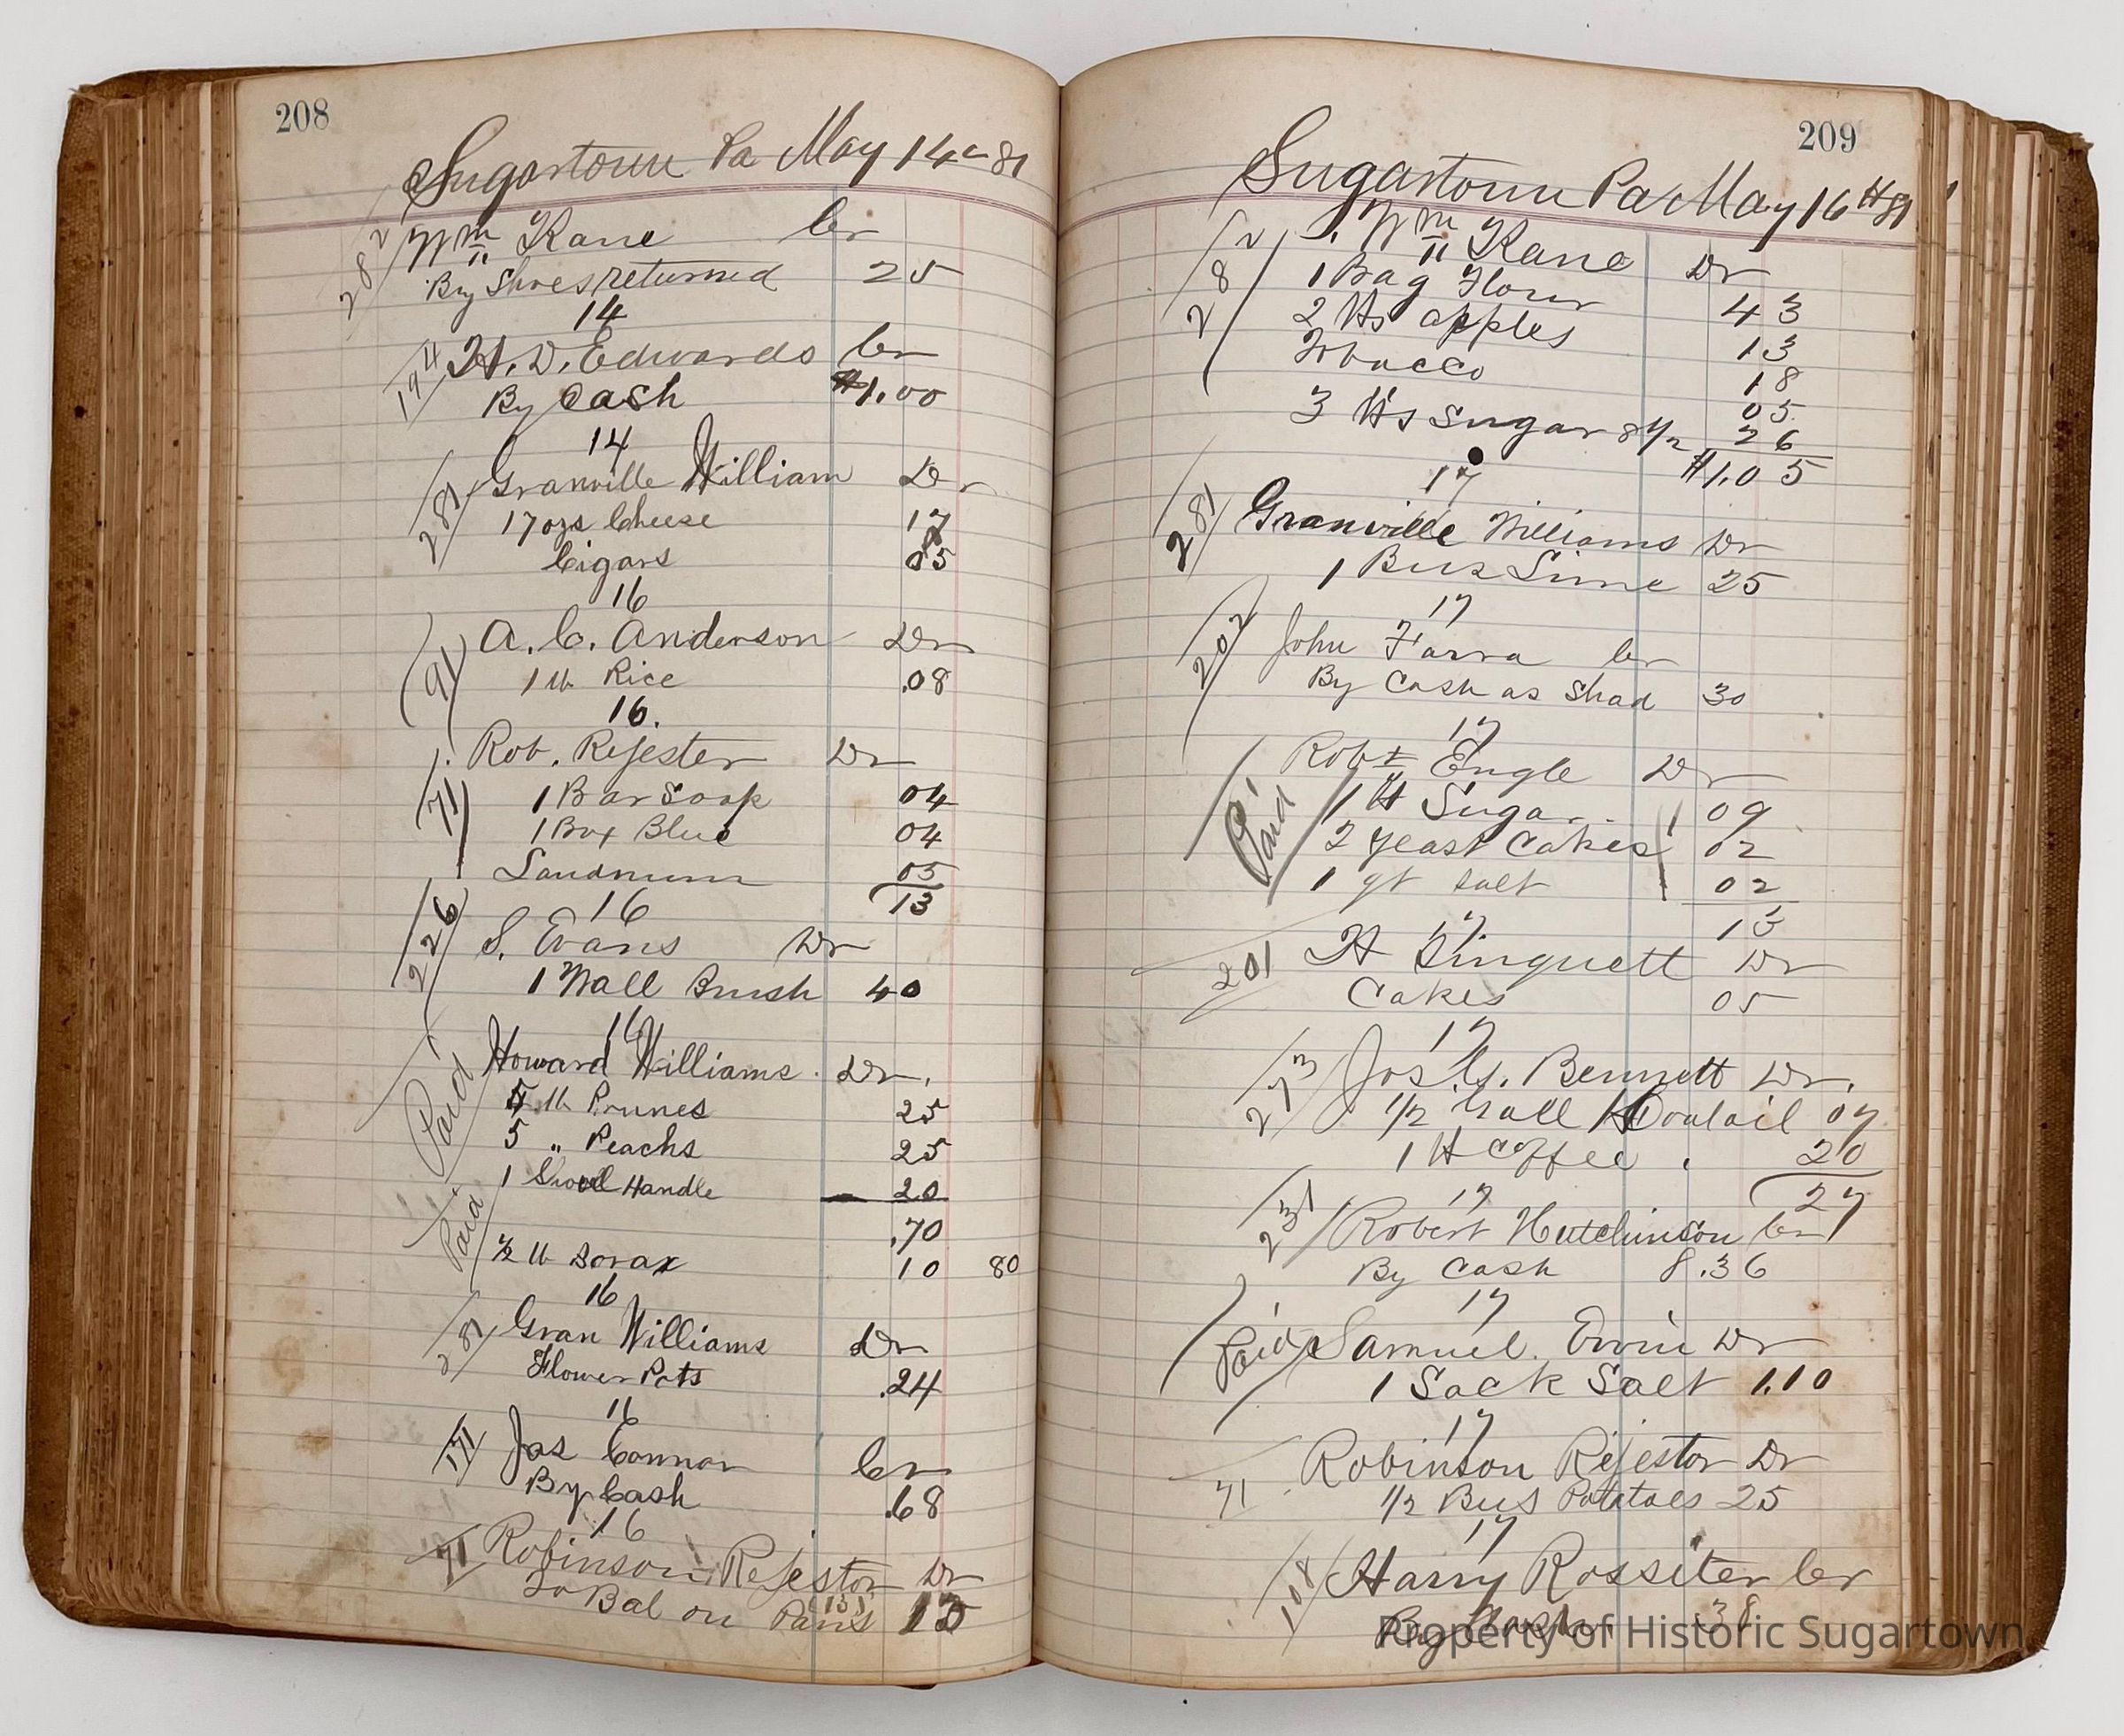 208
Sugartown Pa May 14th 81
282 Wm Kane Cr
By Shoes returned 25
14
194 H. D. Edwards Cr
By Cash $1.00
14
281 Granville William Dr
17 ozs Cheese 17
Cigars 05
16
91 A. C. Anderson Dr
1 lb Rice .08
16.
71 Rob. Rejester Dr
1 Bar Soap 04
1 Box Blue 04
05
13
16
226 S. Evans Dr
1 Wall Brush 40
16
Paid Howard Williams. Dr.
5 lb Prunes 25
5 " Peachs 25
1 Shovel Handle 20
.70
Paid ½ lb Borax 10 80
16
281 Gran Williams Dr
Flower Pots .24
16
171 Jas Connor Cr
By Cash .68
16
71 Robinson Rejestor Dr
To Bal on Pants (15)
209
Sugartown Pa May 16th 81
282 Wm Kane Dr
1 Bag Flour 43
2 lbs apples 13
Tobacco 18
05
3 lbs Sugar 8½ 26
17 $1.05
281 Granville Williams Dr
1 Bus Lime 25
17
202 John Farra Cr
By Cash as Shad 30
17
Paid Robt Engle Dr
1 lb Sugar 09
2 yeast Cakes 02
1 qt salt 02
17 13
201 H Pinquett Dr
Cakes 05
17
273 Jos. G. Bennett Dr.
½ Gall Coalail 07
1 lb Coffee. 20
17 27
231 Robert Hutchinson Cr
By Cash 8.36
17
Paid Samuel. Ervin Dr
1 Sack Salt 1.10
17
71 Robinson Rejestor Dr
½ Bus Potatoes 25
17
108 Harry Rossiter Cr
By Cash .38
Property of Historic Sugartown